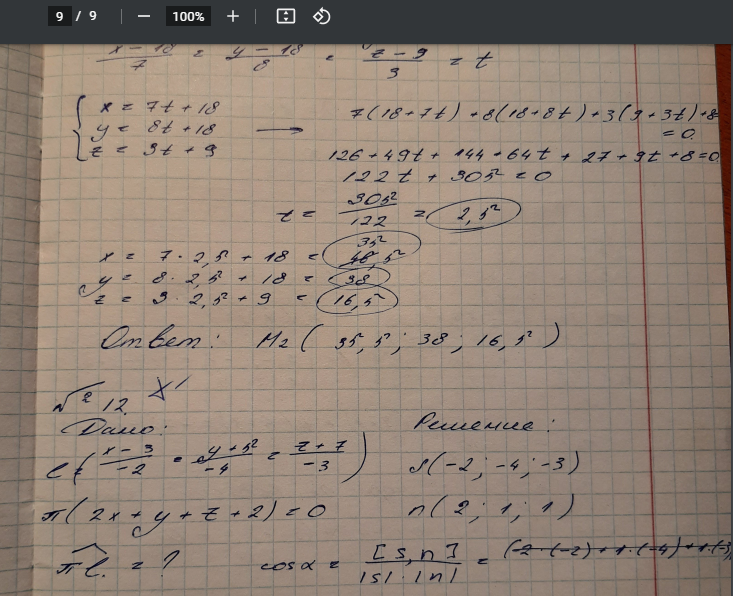 9 / 9 — 100% +
x - 18 / 7 = y - 18 / 8 = z - 9 / 3 = t
x = 7t + 18
y = 8t + 18
z = 3t + 9
→ 7(18 + 7t) + 8(18 + 8t) + 3(9 + 3t) + 8
= 0
126 + 49t + 144 + 64t + 27 + 9t + 8 = 0
122t + 305 = 0
t = 305 / 122 = 2,5
x = 7 · 2,5 + 18 = 35,5
y = 8 · 2,5 + 18 = 38
z = 3 · 2,5 + 9 = 16,5
Ответ: M2 ( 35,5 ; 38 ; 16,5 )
№ 12
Дано:
l ( x - 3 / -2 = y + 5 / -4 = z + 7 / -3 )
π( 2x + y + z + 2) = 0
πl = ?
Решение:
s(-2 ; -4 ; -3)
n( 2 ; 1 ; 1 )
cos α = [s, n] / |s| · |n| =